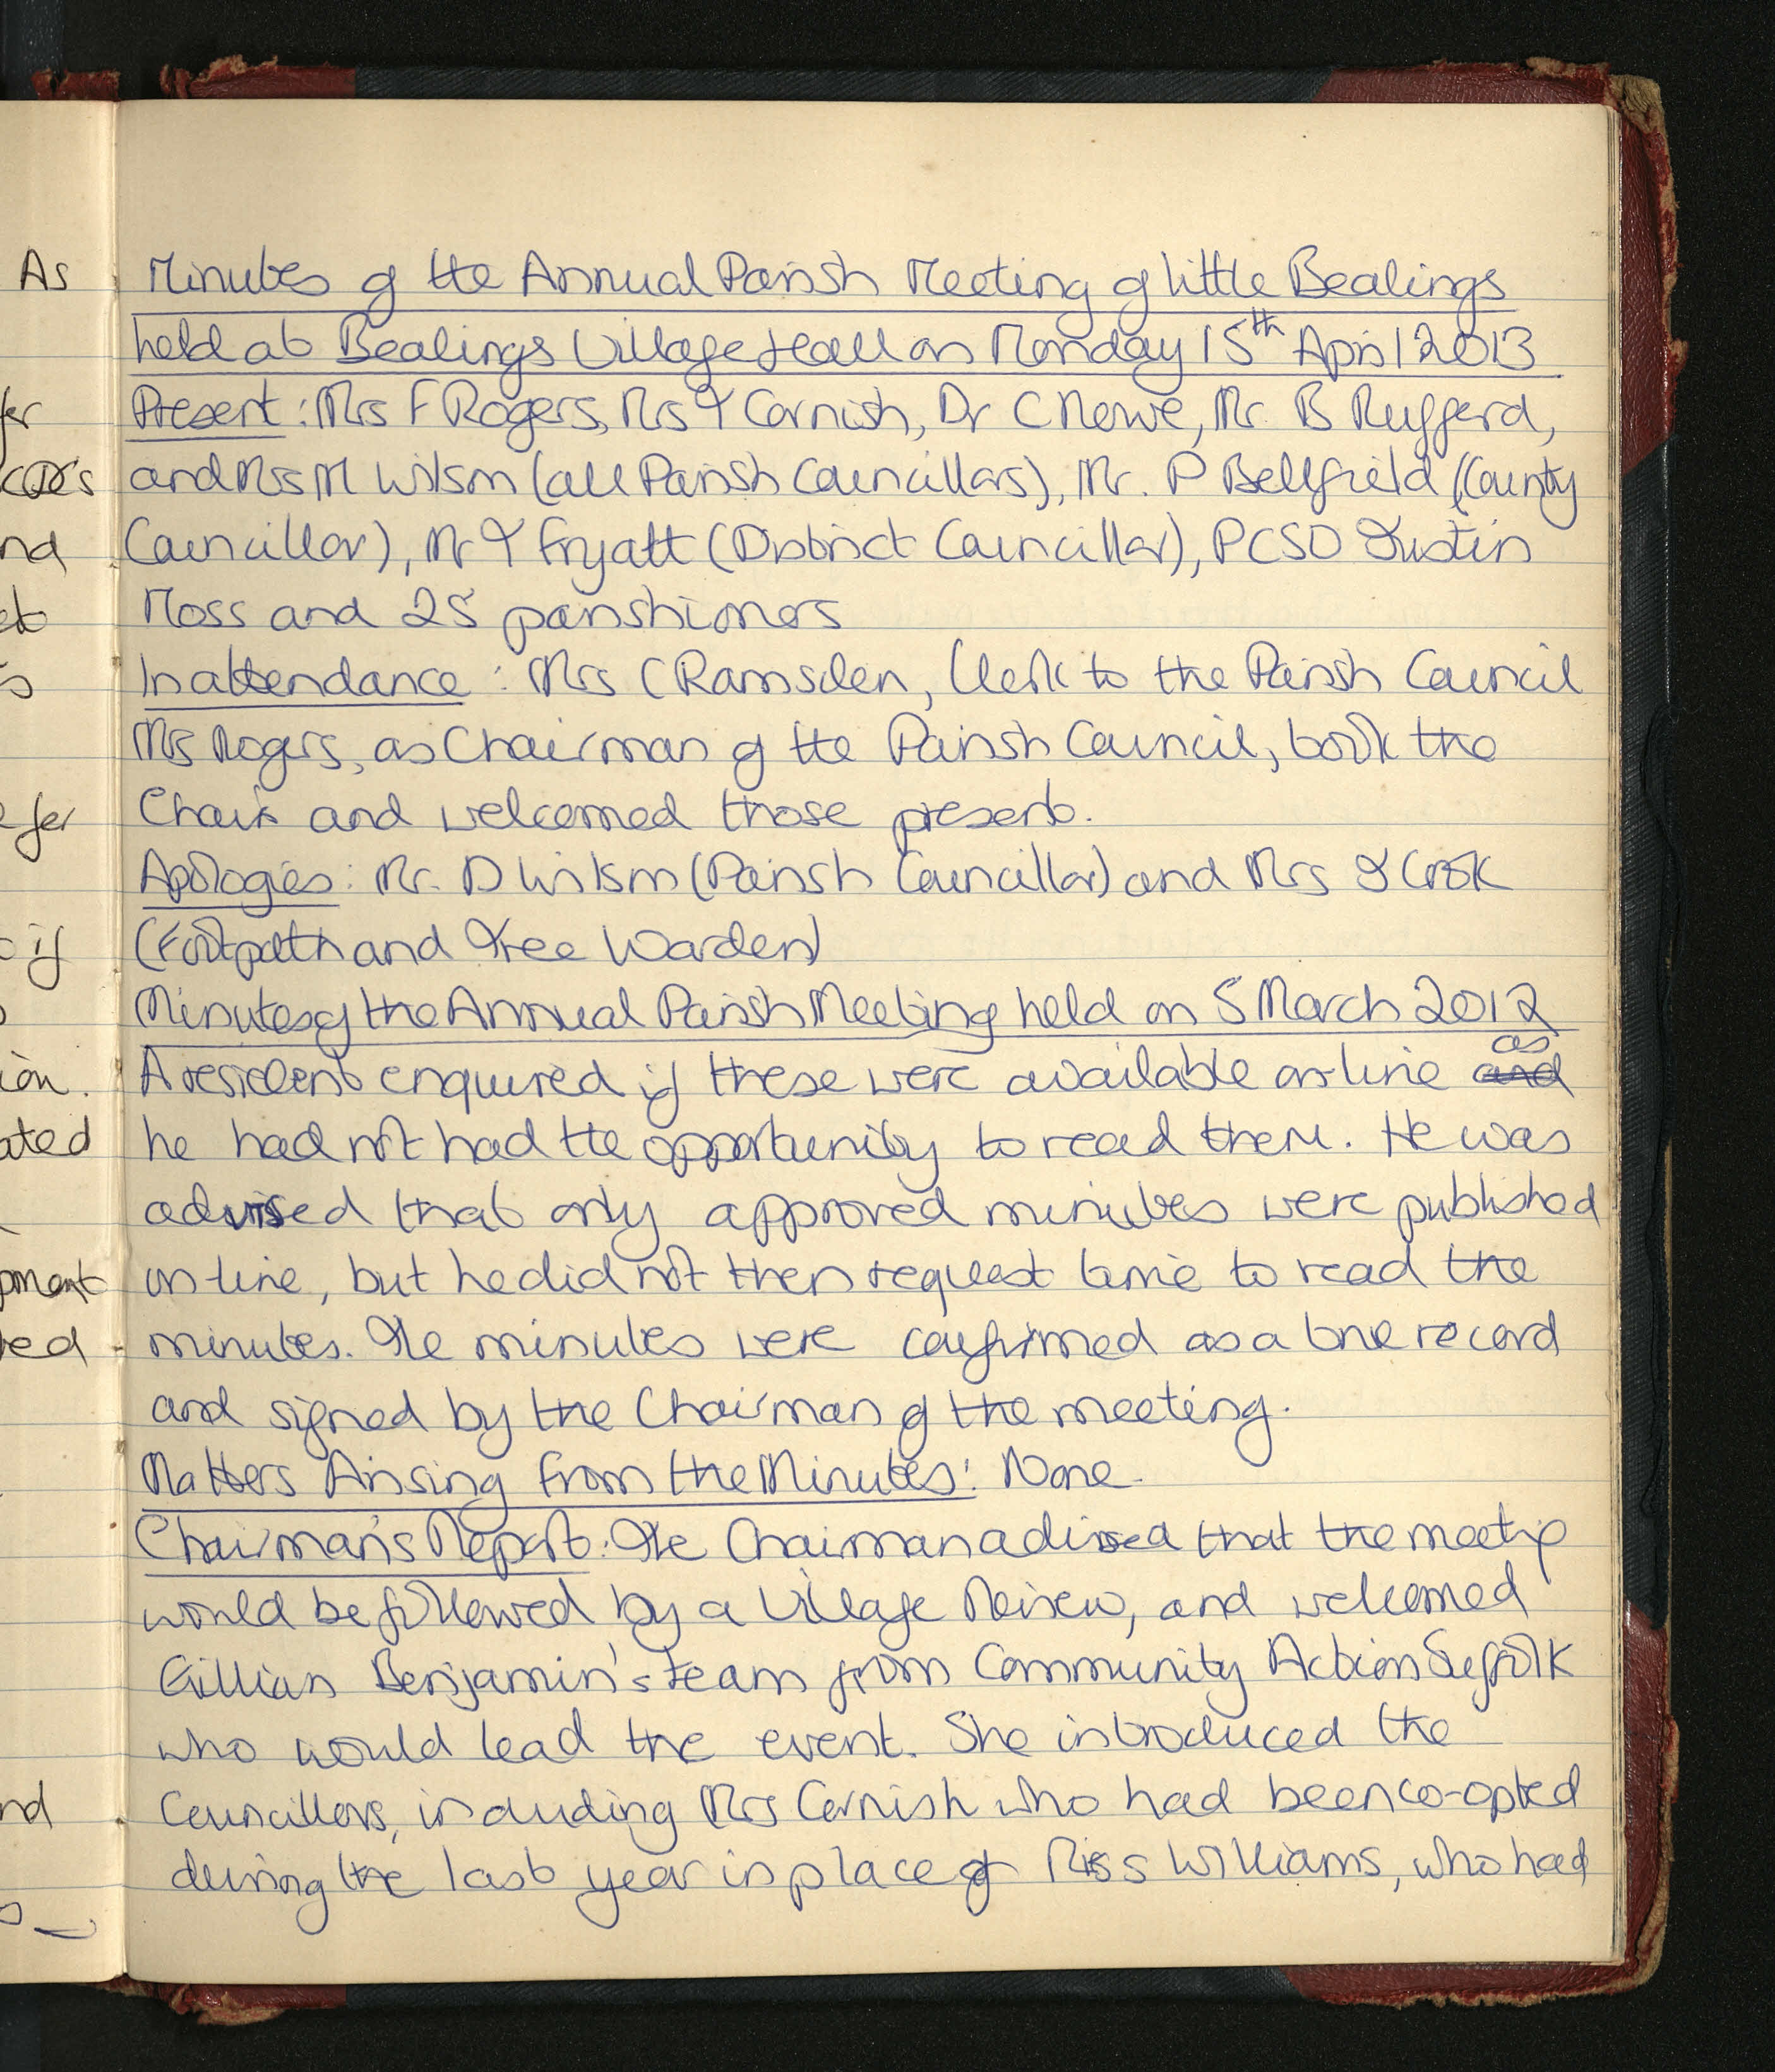 Minutes of the Annual Parish Meeting of Little Bealings
held at Bealings Village Hall on Monday 15th April 2013
Present: Mrs F Rogers, Mrs Y Cornish, Dr C Nowe, Mr. B Rufford,
and Mrs M Wilson (all Parish Councillors), Mr. P Bellfield (County
Councillor), Mr T Fryatt (District Councillor), PCSO Justin
Moss and 25 parishioners
In attendance: Mrs C Ramsden, Clerk to the Parish Council
Mrs Rogers, as Chairman of the Parish Council, took the
Chair and welcomed those present.
Apologies: Mr. D Wilson (Parish Councillor) and Mrs J Cook
(Footpath and Tree Warden)
Minutes of the Annual Parish Meeting held on 5 March 2012
A resident enquired if these were available on-line and as
he had not had the opportunity to read them. He was
advised that only approved minutes were published
on-line, but he did not then request time to read the
minutes. The minutes were confirmed as a true record
and signed by the Chairman of the meeting.
Matters Arising from the Minutes: None.
Chairman's Report: The Chairman advised that the meeting
would be followed by a Village Review, and welcomed
Gillian Benjamin's team from Community Action Suffolk
who would lead the event. She introduced the
Councillors, including Mrs Cornish who had been co-opted
during the last year in place of Miss Williams, who had
As
fer
nd
if
ated
pment
nd